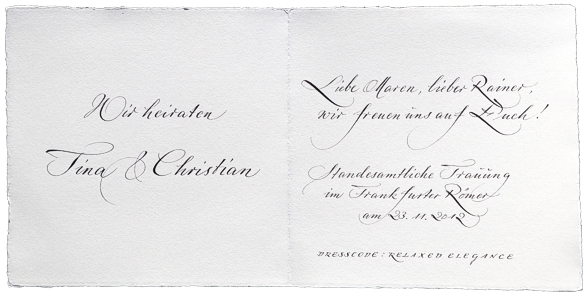 Wir heiraten
Tina & Christian
Liebe Maren, lieber Rainer,
wir freuen uns auf Euch!
Standesamtliche Trauung
im Frankfurter Römer
am 23.11.2012
DRESSCODE: RELAXED ELEGANCE